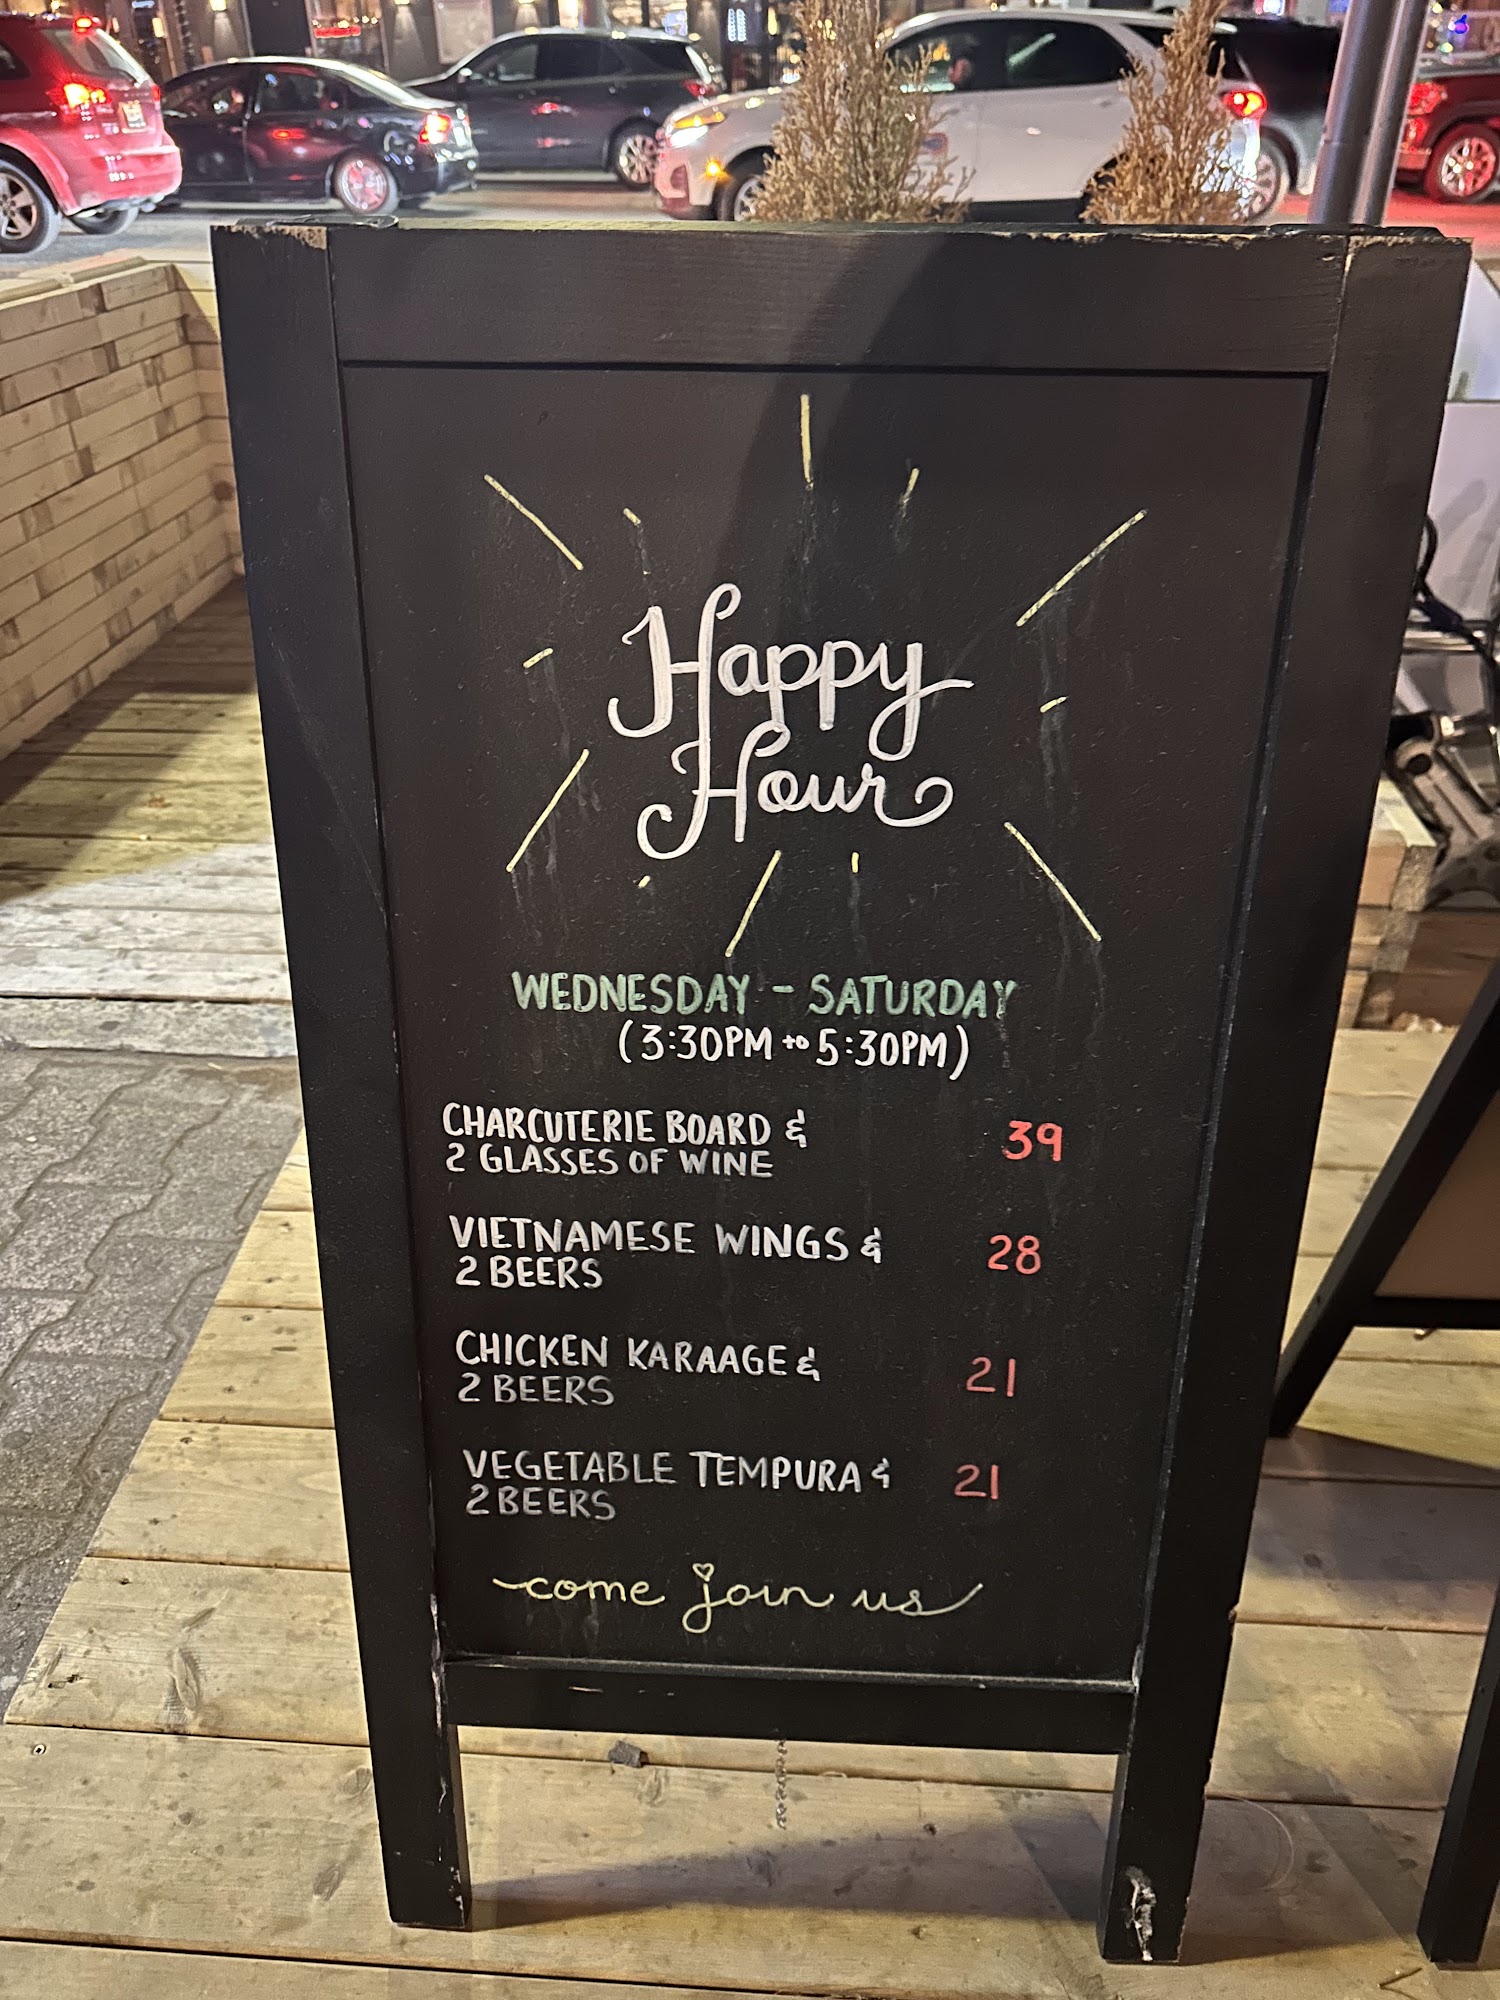 Happy
Hour
WEDNESDAY - SATURDAY
(3:30PM to 5:30PM)
CHARCUTERIE BOARD &
2 GLASSES OF WINE
39
VIETNAMESE WINGS &
2 BEERS
28
CHICKEN KARAAGE &
2 BEERS
21
VEGETABLE TEMPURA &
2 BEERS
21
come join us